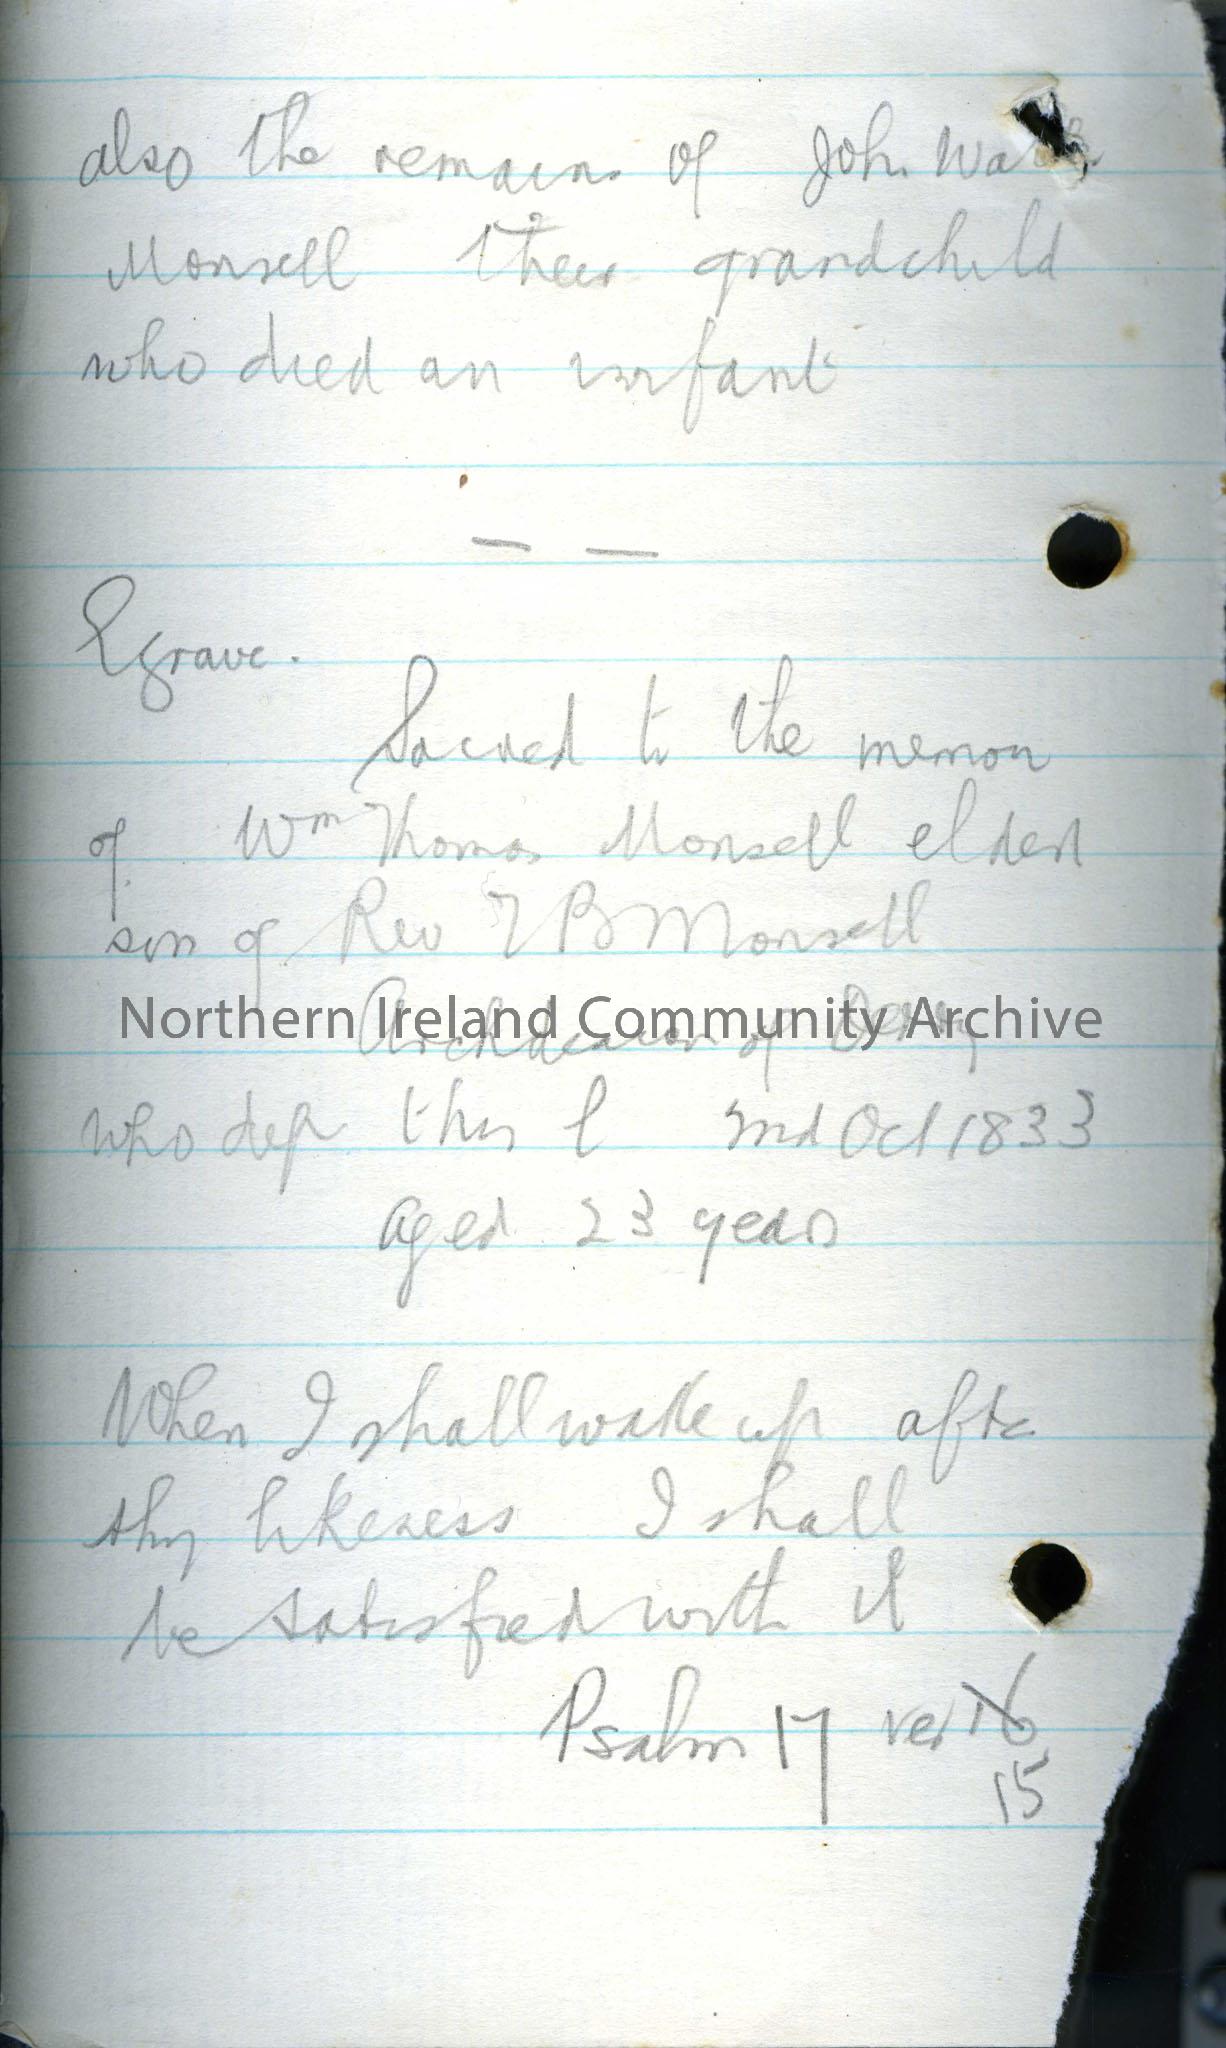 also the remains of John
Monsell their grandchild
who died an infant
— —
grave.
Sacred to the memory
of Wm Thomas Monsell eldest
son of Rev T B Monsell
Archdeacon of Derry
Northern Ireland Community Archive
who dep this l 2nd Oct 1833
Aged 23 years
When I shall wake up after
thy likeness I shall
be satisfied with it
Psalm 17 ver 16
15